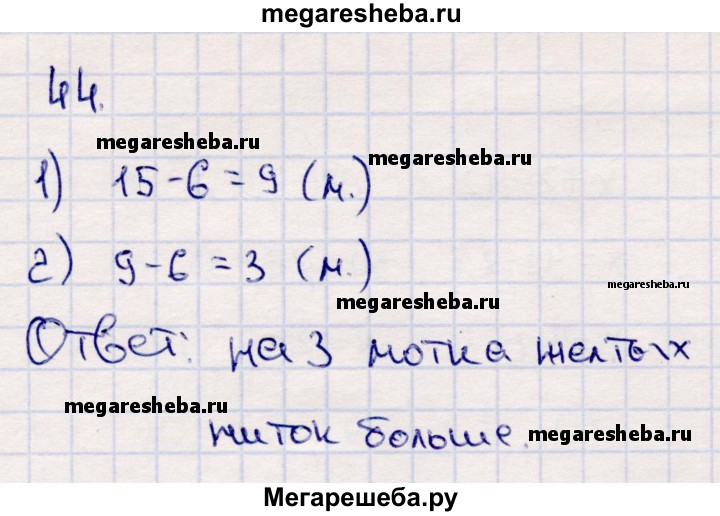 megaresheba.ru
44.
megaresheba.ru
megaresheba.ru
1) 15-6=9 (м.)
2) 9-6=3 (м.)
megaresheba.ru
megaresheba.ru
Ответ: на 3 мотка желтых
megaresheba.ru
ниток больше.
megaresheba.ru
Мегарешеба.ру